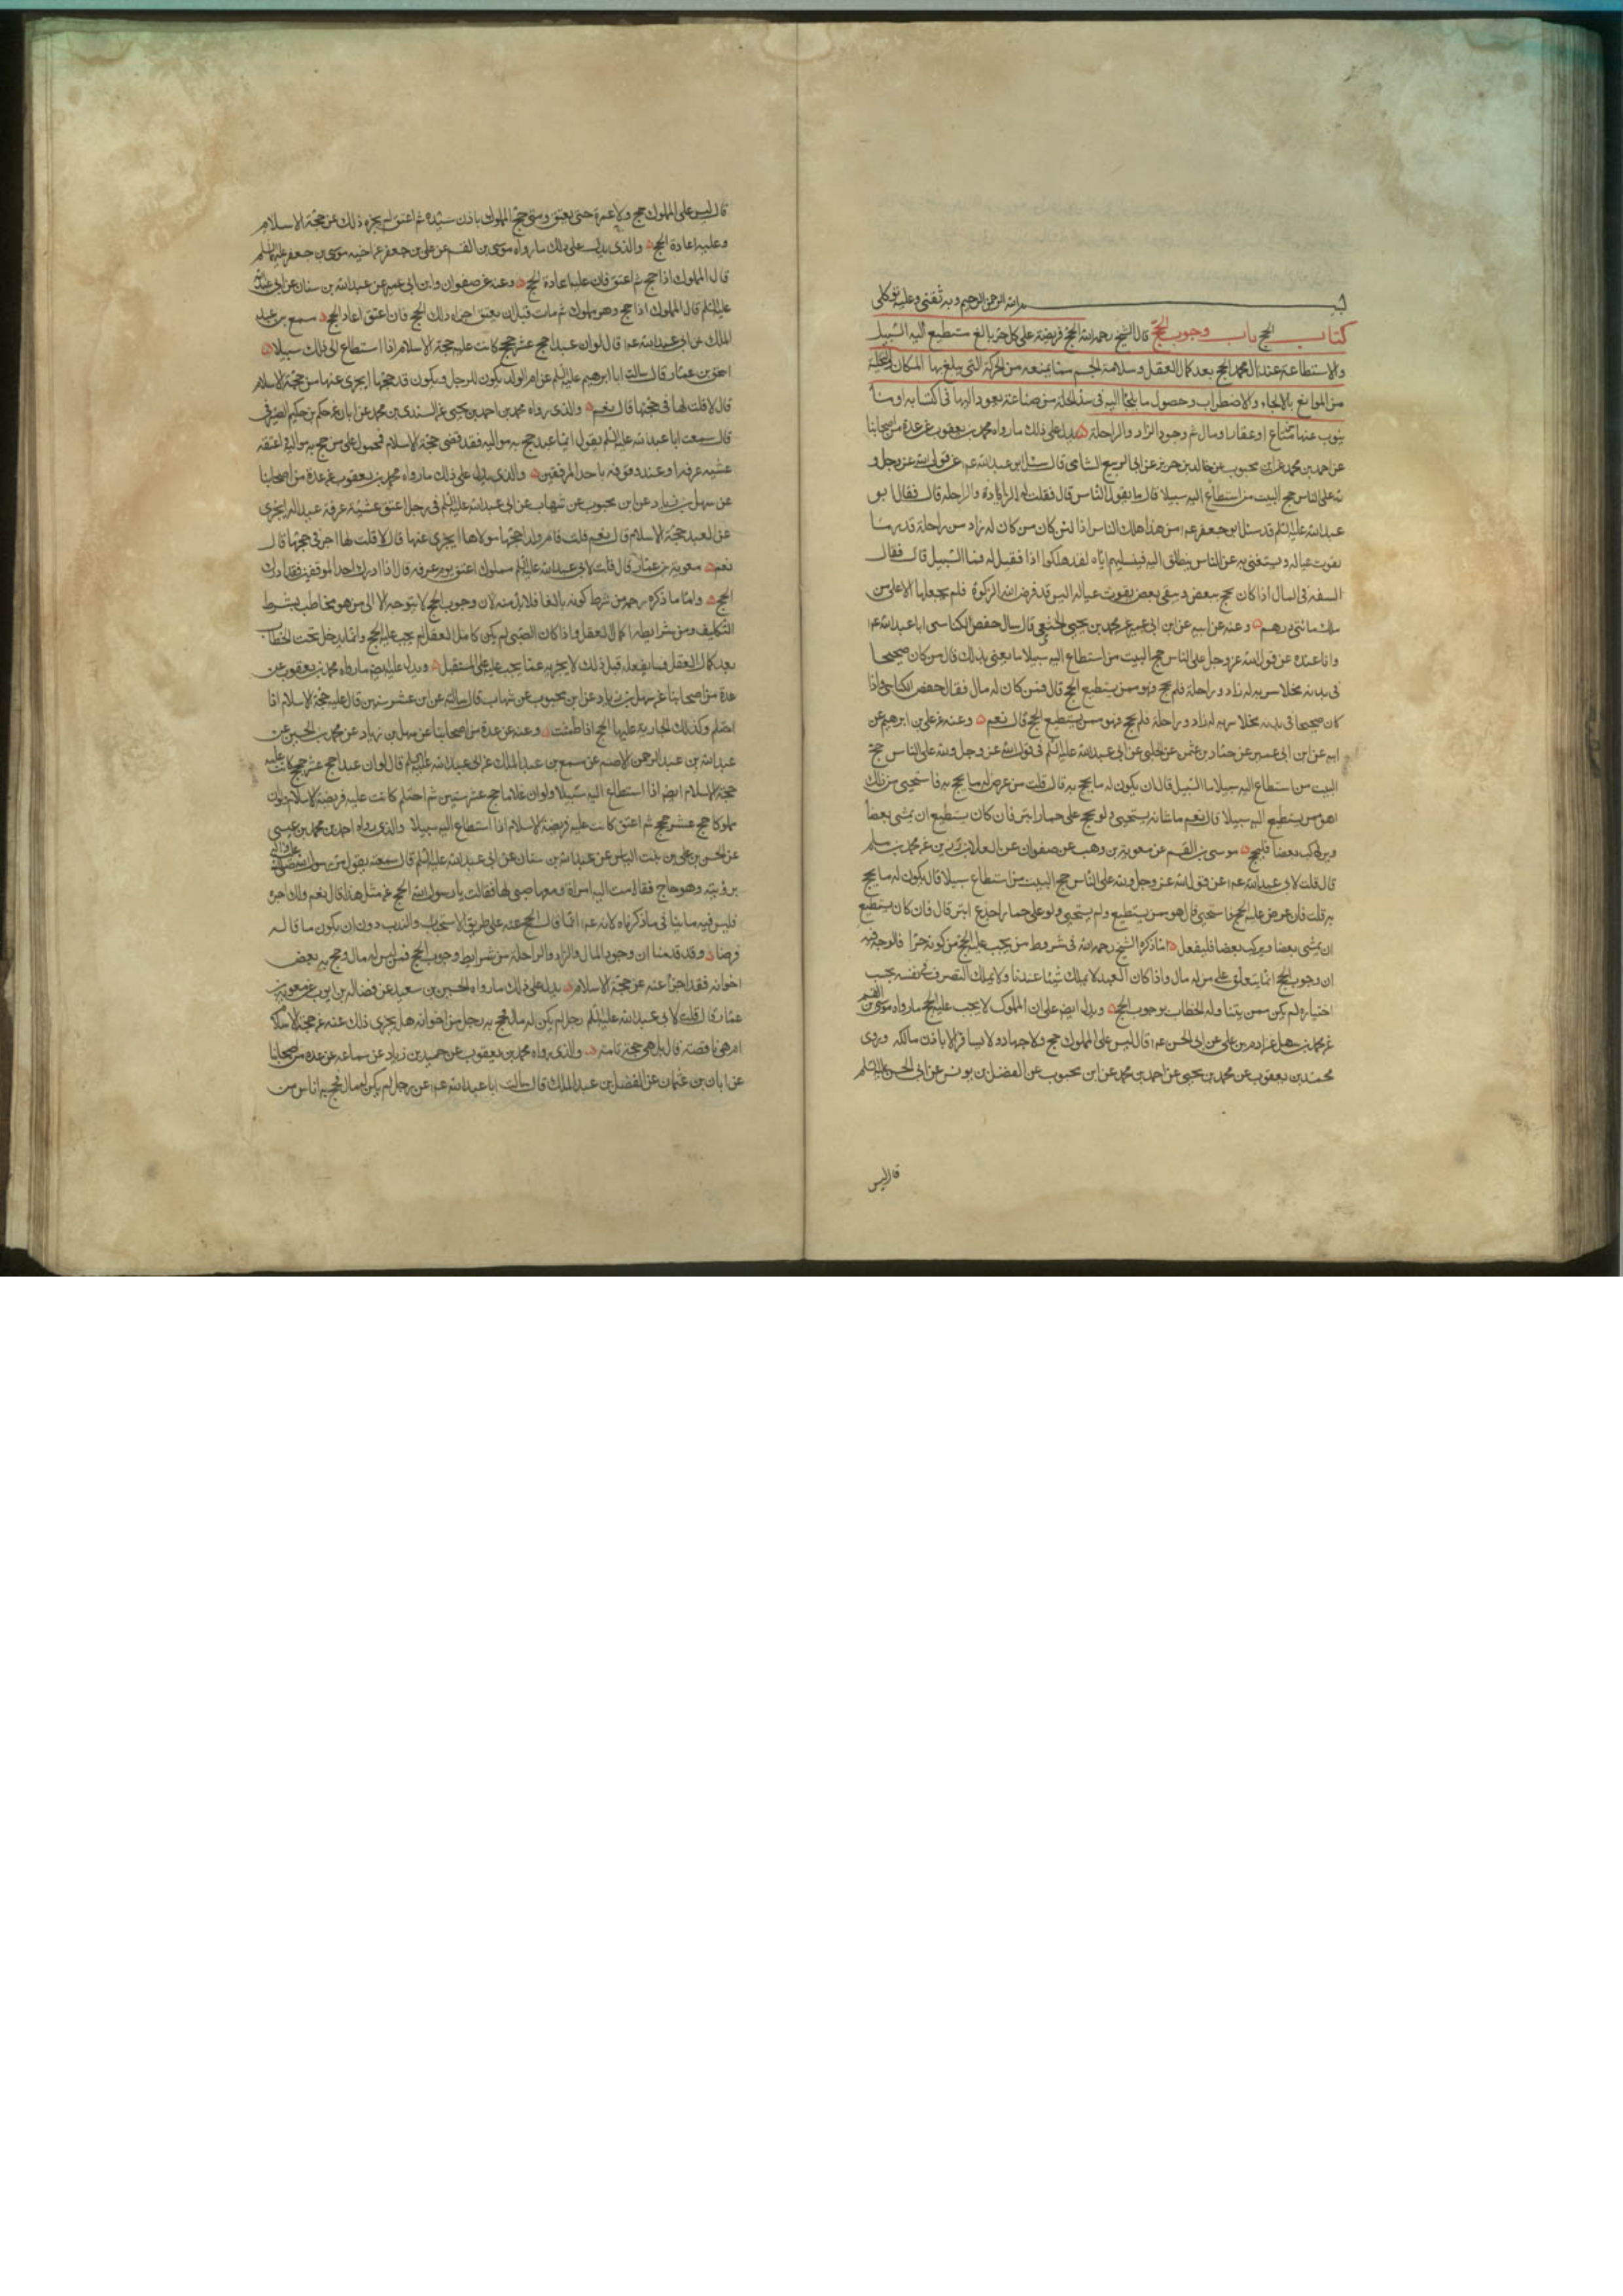 بسم الله الرحمن الرحيم وبه ثقتي وعليه توكلي
كتاب الحج باب وجوب الحج قال الشيخ رحمه الله الحج فريضة على كل حر بالغ مستطيع اليه السبيل
والاستطاعة عند آل محمد للحج بعد كمال العقل وسلامة الجسم مما يمنعه من الحركة التي يبلغ بها المكان والتخلية
من الموانع بالالجاء والاضطرار وحصول ما يلجأ اليه في سد الخلة من صناعة يعود اليها في اكتسابه او ما
ينوب عنها من متاع او عقار او مال ثم وجود الزاد والراحلة يدل على ذلك ما رواه محمد بن يعقوب عن عدة من اصحابنا
عن احمد بن محمد عن ابن محبوب عن خالد بن جرير عن ابي الربيع الشامي قال سئل ابو عبد الله عم عن قول الله عز وجل و
لله على الناس حج البيت من استطاع اليه سبيلا قال ما يقول الناس قال فقلت له الزاد والراحلة قال فقال ابو
عبد الله عليه السلم قد سئل ابو جعفر عم عن هذا هلك الناس اذا لئن كان من كان له زاد وراحلة قدر ما
يقوت عياله ويستغني به عن الناس ينطلق اليه فيسلبهم اياه لقد هلكوا اذا فقيل له فما السبيل قال فقال
السعة في المال اذا كان يحج ببعض ويبقى بعض يقوت عياله اليس قد فرض الله الزكوة فلم يجعلها الا على من
ملك مائتي درهم وعنه عن ابيه عن ابن ابي عمير عن محمد بن يحيى الخثعمي قال سال حفص الكناسي ابا عبد الله عم
وانا عنده عن قول الله عز وجل ولله على الناس حج البيت من استطاع اليه سبيلا ما يعني بذلك قال من كان صحيحا
في بدنه مخلا سربه له زاد وراحلة فلم يحج فهو ممن يستطيع الحج قال فمن كان له مال فقال حفص الكناسي واذا
كان صحيحا في بدنه مخلا سربه له زاد وراحلة فلم يحج فهو ممن يستطيع الحج قال نعم وعنه عن علي بن ابرهيم عن
ابيه عن ابن ابي عمير عن حماد بن عثمن عن الحلبي عن ابي عبد الله عليه السلم في قول الله عز وجل ولله على الناس حج
البيت من استطاع اليه سبيلا ما السبيل قال ان يكون له ما يحج به قال قلت من عرض له ما يحج به فاستحيى من ذلك
اهو ممن يستطيع اليه سبيلا قال نعم ما شانه يستحيى ولو يحج على حمار ابتر فان كان يستطيع ان يمشي بعضا
ويركب بعضا فليحج موسى بن القسم عن معوية بن وهب عن صفوان عن العلا بن رزين عن محمد بن مسلم
قال قلت لابي عبد الله عم عن قول الله عز وجل ولله على الناس حج البيت من استطاع سبيلا قال يكون له ما يحج
به قلت فان عرض عليه الحج فاستحيى قال هو ممن يستطيع ولم يستحيى ولو على حمار اجدع ابتر قال فان كان يستطيع
ان يمشي بعضا ويركب بعضا فليفعل اما ذكره الشيخ رحمه الله في شروط من يجب عليه الحج من كونه حرا فالوجه فيه
ان وجوب الحج انما يتعلق على من له مال واذا كان العبد لا يملك شيئا عندنا ولا يملك التصرف في نفسه بحسب
اختياره لم يكن ممن يتناوله الخطاب بوجوب الحج ويدل ايضا على ان المملوك لا يجب عليه الحج ما رواه موسى بن القسم
عن محمد بن سهل عن ادم بن علي عن ابي الحسن عم قال ليس على المملوك حج ولا جهاد ولا يسافر الا باذن مالكه وروى
محمد بن يعقوب عن محمد بن يحيى عن احمد بن محمد عن ابن محبوب عن الفضل بن يونس عن ابي الحسن عليه السلم
قال ليس
قال ليس على المملوك حج ولا عمرة حتى يعتق ومتى حج المملوك باذن سيده ثم اعتق لم يجزه ذلك عن حجة الاسلام
وعليه اعادة الحج والذي يدل على ذلك ما رواه موسى بن القسم عن علي بن جعفر عن اخيه موسى بن جعفر عليهما السلم
قال المملوك اذا حج ثم اعتق فان عليه اعادة الحج وعنه عن صفوان وابن ابي عمير عن عبد الله بن سنان عن ابي عبد الله
عليه السلم قال المملوك اذا حج وهو مملوك ثم مات قبل ان يعتق اجزاه ذلك الحج فان اعتق اعاد الحج مسمع بن عبد
الملك عن ابي عبد الله عم قال لو ان عبدا حج عشر حجج كانت عليه حجة الاسلام اذا استطاع الى ذلك سبيلا
اسحق بن عمار قال سالت ابا ابرهيم عليه السلم عن ام الولد يكون للرجل ويكون قد حجها ايجزي عنها من حجة الاسلام
قال لا قلت لها في حجتها قال نعم والذي رواه محمد بن احمد بن يحيى عن السندي بن محمد عن ابان عن حكم بن حكيم الصيرفي
قال سمعت ابا عبد الله عليه السلم يقول ايما عبد حج به مواليه فقد قضى حجة الاسلام فمحمول على من حج به مواليه فاعتقه
عشية عرفة او عند وقوفه باحد الموقفين والذي يدل على ذلك ما رواه محمد بن يعقوب عن عدة من اصحابنا
عن سهل بن زياد عن ابن محبوب عن شهاب عن ابي عبد الله عليه السلم في رجل اعتق عشية عرفة عبدا له ايجزى
عن العبد حجة الاسلام قال نعم قلت فام ولد احجها مولاها ايجزى عنها قال لا قلت لها اجر في حجتها قال
نعم معوية بن عمار قال قلت لابي عبد الله عليه السلم مملوك اعتق يوم عرفه قال اذا ادرك احد الموقفين فقد ادرك
الحج واما ما ذكره رحمه من شرط كونه بالغا فلا بد منه لان وجوب الحج لا يتوجه الا الى من هو مخاطب بشرط
التكليف ومن شرايطه كمال العقل واذا كان الصبي لم يكن كامل العقل لم يجب عليه الحج وانما يدخل تحت الخطاب
بعد كمال العقل فما يفعله قبل ذلك لا يجزيه عما يجب عليه في المستقبل ويدل عليه ايضا ما رواه محمد بن يعقوب عن
عدة من اصحابنا عن سهل بن زياد عن ابن محبوب عن شهاب قال سالته عن ابن عشر سنين قال عليه حجة الاسلام اذا
احتلم وكذلك الجارية عليها الحج اذا طمثت وعنه عن عدة من اصحابنا عن سهل بن زياد عن محمد بن الحسين عن
عبد الله بن عبد الرحمن الاصم عن مسمع بن عبد الملك عن ابي عبد الله عليه السلم قال لو ان عبدا حج عشر حجج كانت عليه
حجة الاسلام ايضا اذا استطاع اليه سبيلا ولو ان غلاما حج عشر سنين ثم احتلم كانت عليه فريضة الاسلام ولو ان
مملوكا حج عشر حجج ثم اعتق كانت عليه فريضة الاسلام اذا استطاع اليه سبيلا والذي رواه احمد بن محمد بن عيسى
عن الحسن بن علي بن بنت الياس عن عبد الله بن سنان عن ابي عبد الله عليه السلم قال سمعته يقول مر رسول الله صلى الله عليه واله
برويثة وهو حاج فقامت اليه امراة ومعها صبي لها فقالت يا رسول الله الحج عن مثل هذا قال نعم ولك اجره
فليس فيه ما ينافي ما ذكرناه لانه عم انما قال الحج عنه على طريق الاستحباب والندب دون ان يكون ما قاله
فرضا وقد قدمنا ان وجود المال والزاد والراحلة من شرايط وجوب الحج فمن ليس له مال وحج به بعض
اخوانه فقد اجزا عنه عن حجة الاسلام يدل على ذلك ما رواه الحسين بن سعيد عن فضالة بن ايوب عن معوية بن
عمار قال قلت لابي عبد الله عليه السلم رجل لم يكن له مال فحج به رجل من اخوانه هل يجزى ذلك عنه عن حجة الاسلام
ام هي ناقصة قال بل هي حجة تامة والذي رواه محمد بن يعقوب عن حميد بن زياد عن سماعة عن عدة من اصحابنا
عن ابان بن عثمان عن الفضل بن عبد الملك قال سالت ابا عبد الله عم عن رجل لم يكن له مال فحج به اناس من